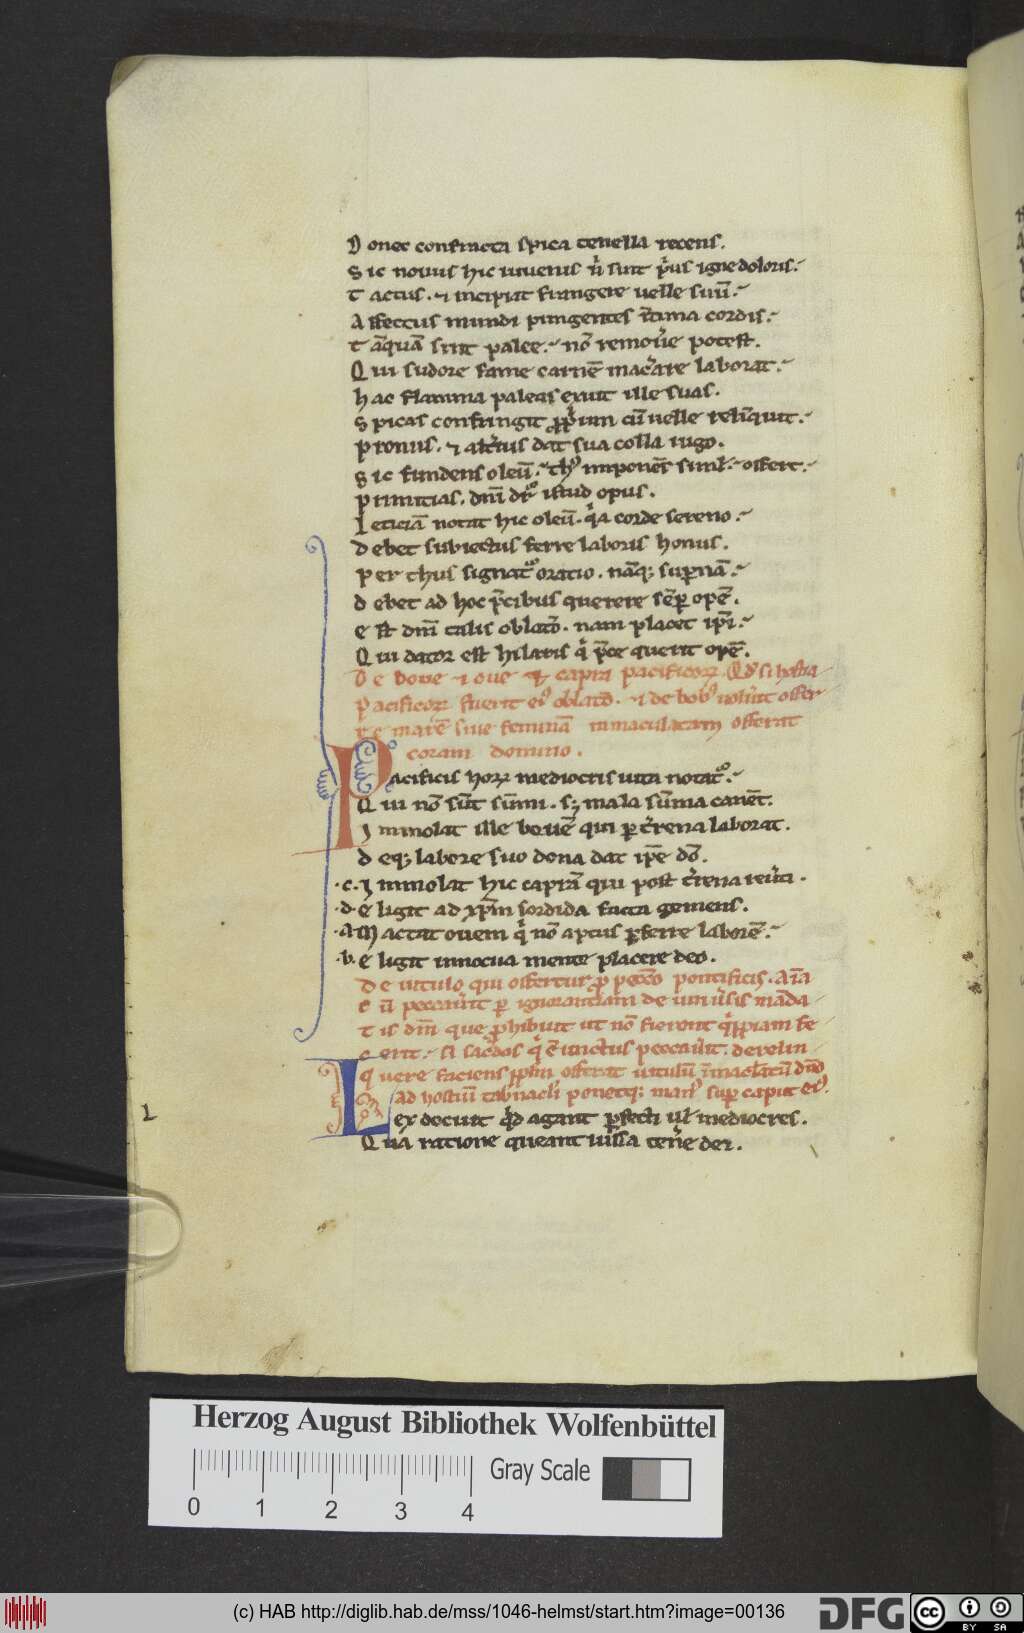 D onec confracta spica tenella recens.
S ic nouus hic uiuenis n̄ sint p̄us igne doloris.
T actus. ⁊ incipiat frangere uelle suū.
A ffectus mundi pungentes ītima cordis.
T āquā sint palee. nō remoue potest.
Q ui sudore fame carnē mac̄are laborat.
h ac flamma paleas exuit ille suas.
S picas confringit pprium cū uelle relīquit.
P ronus. ⁊ alt̄ius dat sua colla iugo.
S ic fundens oleū. thꝰ imponēs simł. offert.
P rimitias. dnī dr̄ istud opus.
L eticiā notat hic oleū. q̄a corde sereno.
D ebet subiectus ferre laboris honus.
P er thus signat᷑ oratio. nāq; supnā.
D ebet ad hoc p̄cibus querere sēp opē.
E st dnī talis oblatō. nam placet ip̄i.
Q ui dator est hilaris q̄ p̄ce querit opē.
D e boue ⁊ oue & capra pacificoꝝ. Qd si hostia
P acificoꝝ fuerit eiꝰ oblatō. ⁊ de bobꝰ uolūit offer
r e marē siue feminā inmaculatam offerat
coram domino.
P acificis hoꝝ mediocris uita notat᷑.
Q ui nō sūt sūmi. s; mala sūma cauēt.
I mmolat ille bouē qui p t̄rena laborat.
D eq; labore suo dona dat ip̄e dō.
.c. I mmolat hic caprā qui post t̄rena reūti.
.d. E ligit ad xp̄m sordida facta gemens.
.a. M actat ouem q̄ nō aptus pferre laborē.
.b. E ligit innocua mente placere deo.
D e uitulo qui offertur p peccō pontificis. Aīa
c ū peccauit p ignorantiam de uniūsis māda
t is dnī que phibuit ut nō fierent q̄ppiam fe
c erit. si sacdos q̄ ē unctus peccaūit. derelin
q uere faciens pplm offerat uitulū īmaclatū dnō
ad hostiū tabnacli ponetq; manꝰ sup caput eiꝰ.
L ex docuit qd agant pfecti ul mediocres.
Q ua ratione queant iussa tene dei.
Herzog August Bibliothek Wolfenbüttel
0 1 2 3 4
Gray Scale
(c) HAB http://diglib.hab.de/mss/1046-helmst/start.htm?image=00136
DFG
cc BY SA